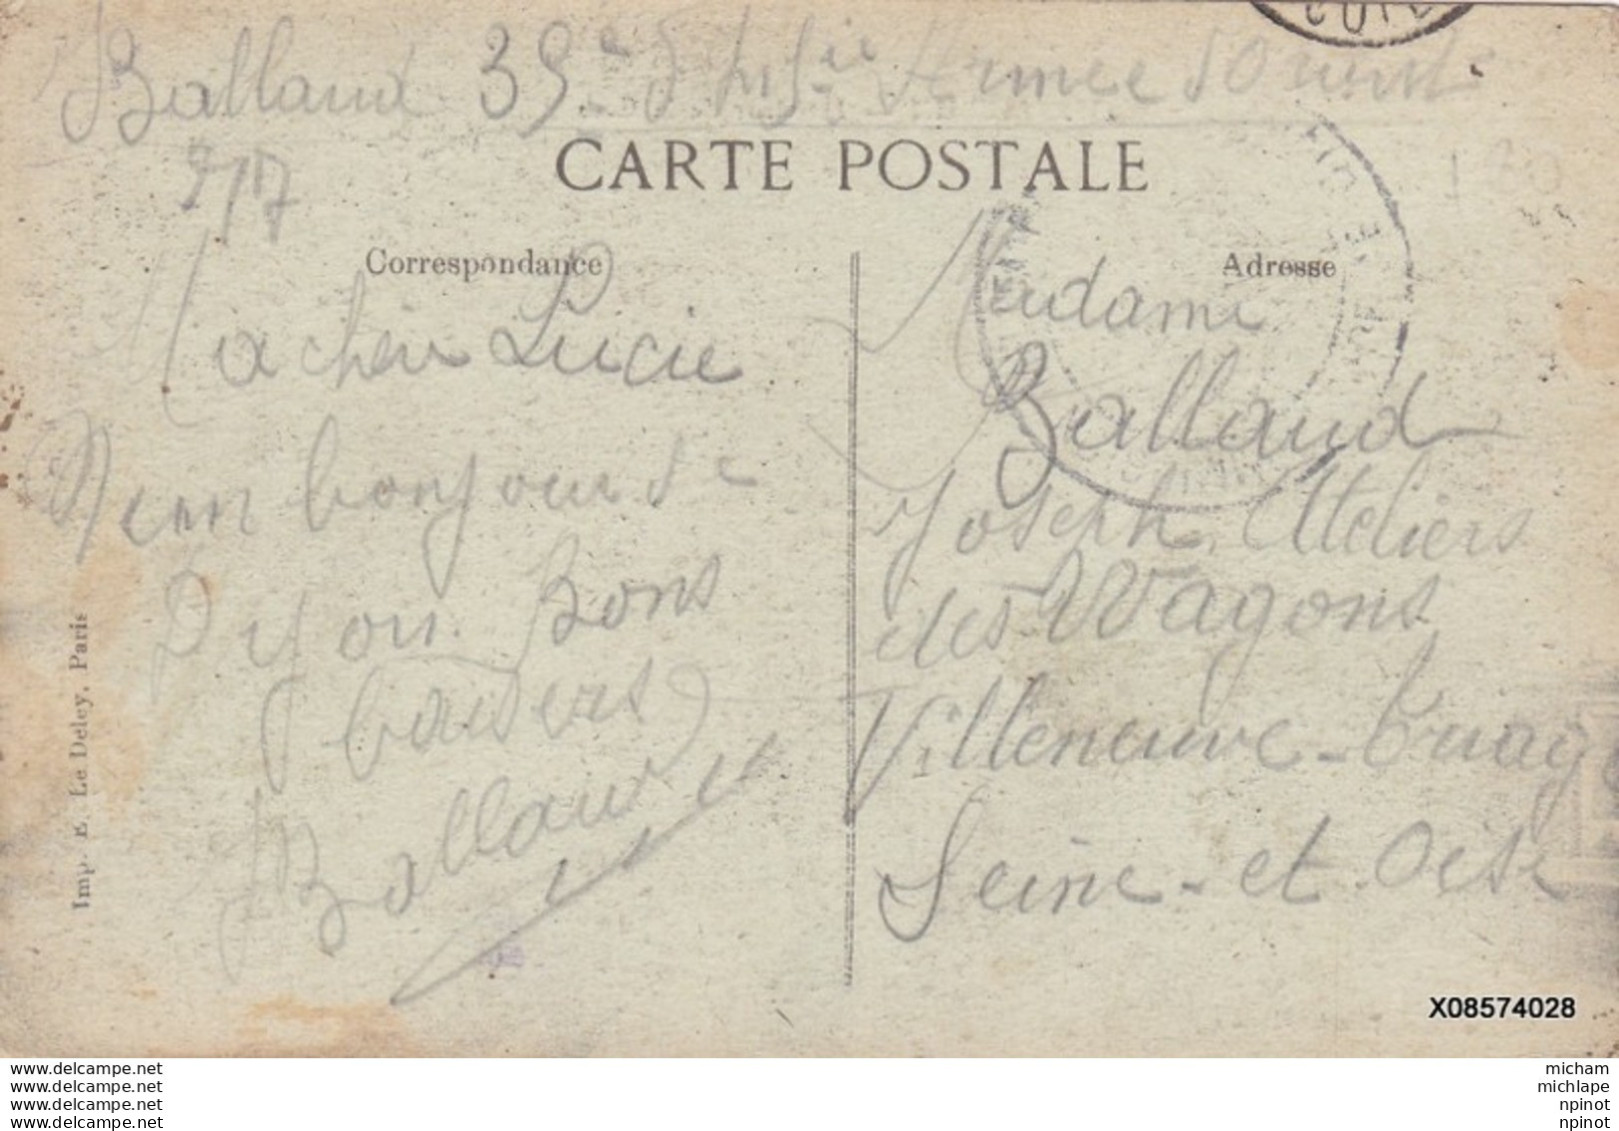 Balland 39e d'Inf.ie Armée d'Orient
7/17
CARTE POSTALE
Correspondance
Adresse
Ma chère Lucie
bonjour de
Dijon. Bons
baisers
Balland
Madame
Balland
Joseph, Ateliers
des Wagons
Villeneuve-
Seine-et-Oise
Imp. E. Le Deley, Paris
X08574028
www.delcampe.net
www.delcampe.net
www.delcampe.net
www.delcampe.net
micham
michlape
npinot
npinot